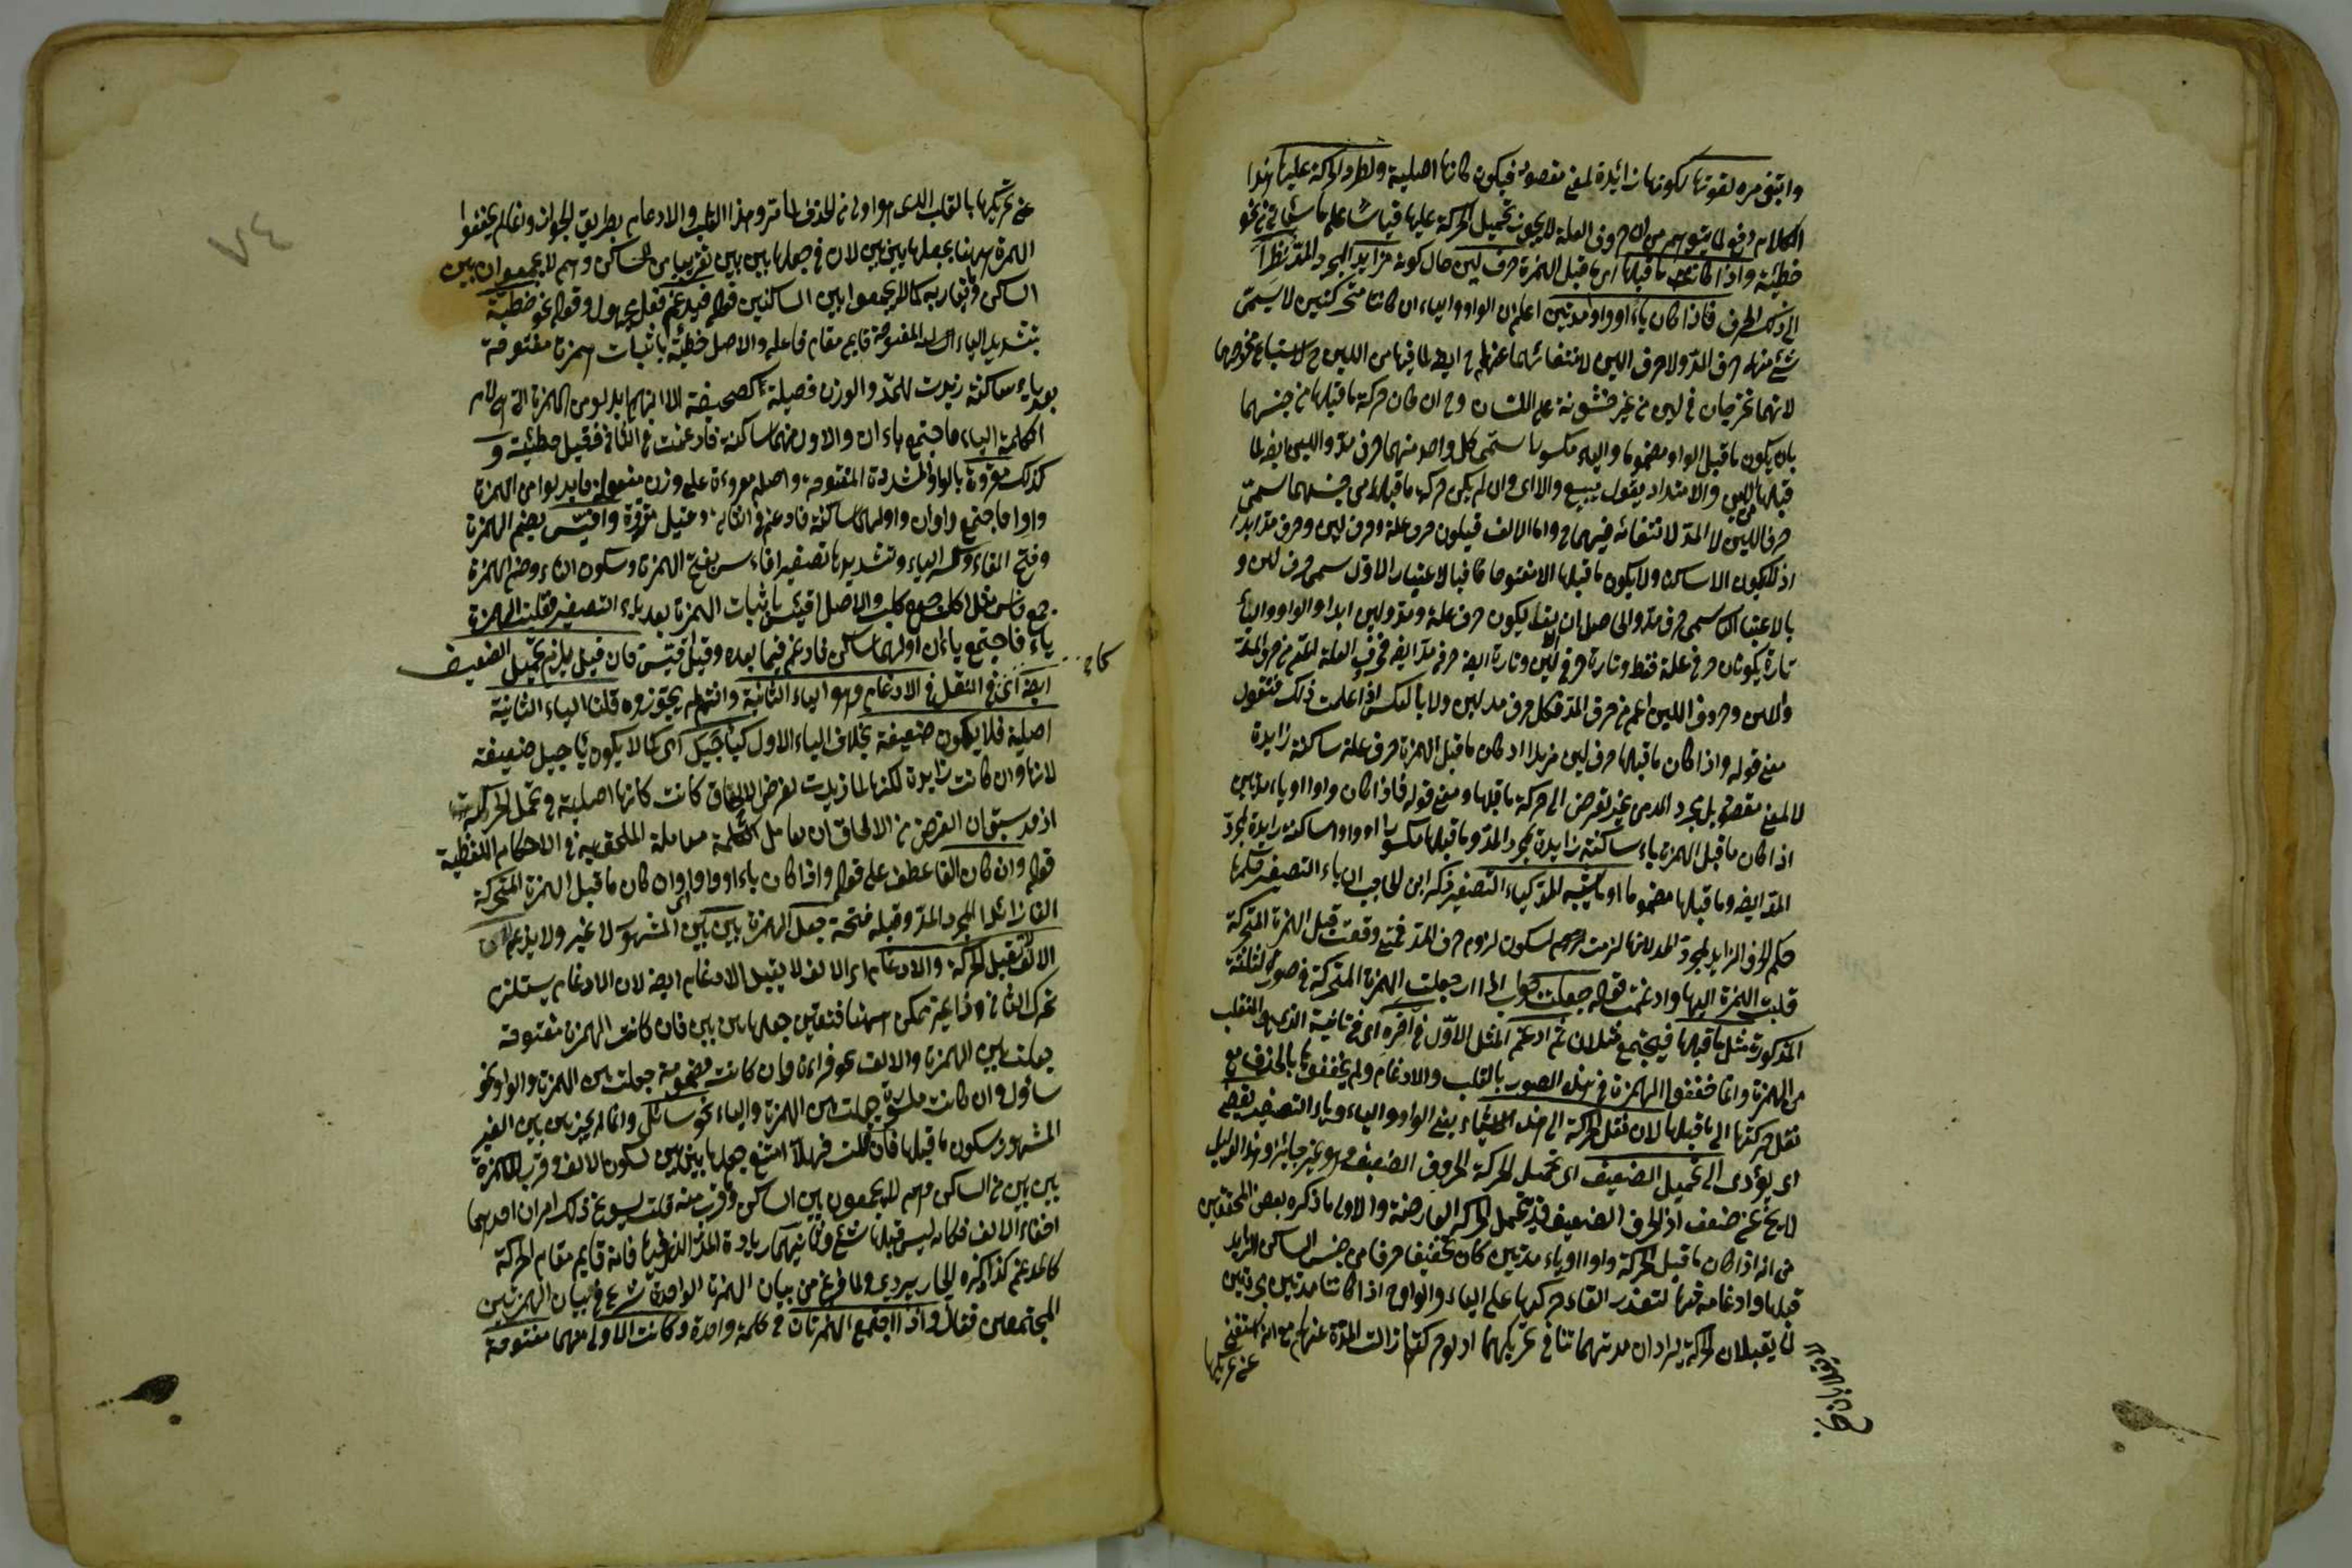 وابتغى مره لقوتها لكونها زائدة لمعنى مقصود فيكون كانها اصلية ولطرد الحركة عليها هذا
الكلام دفع لما يتوهم من ان حروف العلة لا يجوز تحميل الحركة عليها قياسا على ما سياتى فى نحو
خطيئة واذا كانت ما قبلها اى ما قبل الهمزة حرف لين حال كونه مزايد لمجرد المد نظرا
الى ذلك الحرف فاذا كان ياء او واوا مدتين اعلم ان الواو والياء ان كانتا متحركتين لا يسمى
شئ منهما حرف المد ولا حرف اللين لانتفائهما عنهما ح ايضا لما فيها من اللين ح لاتساع مخرجهما
لانهما تخرجان فى لين من غير خشونة على اللسان وح ان كان حركة ما قبلها من جنسهما
بان يكون ما قبل الواو مضموما والياء مكسورا سمى كل واحد منهما حرف مد واللين ايضا لما
قبلها من اللين والامتداد يقول يبيع والا اى وان لم يكن حركة ما قبلها من جنسهما سمى
حرف اللين لا المد لانتفائه فيهما ح واما الالف فيكون حرف علة وحرف لين وحرف مد ابدا
اذ لا يكون الا ساكنا ولا يكون ما قبلها الا مفتوحا فبالاعتبار الاول سمى حرف لين و
بالاعتبار سمى حرف مد والحاصل ان الالف يكون حرف علة ومد ولين ابدا والواو والياء
تارة يكونان حرفى علة فقط وتارة حرفى لين وتارة ايضا حرفى مد ايضا فحروف العلة اعم من حروف المد
واللين وحروف اللين اعم من حرف المد فكل حرف مد لين ولا بالعكس اذا علمت ذلك فنقول
معنى قوله واذا كان ما قبلها حرف لين مزيدا اذ كان ما قبل الهمزة حرف علة ساكنة زايدة
لا لمعنى مقصود بل لمجرد المد من غير تعرض الى حركة ما قبلها ومعنى قوله فاذا كان واوا او ياء مدتين
اذا كان ما قبل الهمزة ياء ساكنة زايدة لمجرد المد وما قبلها مكسورا او واوا ساكنة زايدة لمجرد
المد ايضا وما قبلها مضموما او ما يشبه المد كياء التصغير ذكر ابن الحاجب ان ياء التصغير حكمها
حكم الحرف الزايد لمجرد المد لانها لزمت السكون لزوم حرف المد فمتى وقعت قبل الهمزة المتحركة
قلبت الهمزة اليها وادغمت قوله جعلت جواب اذا اى جعلت الهمزة المتحركة فى صور الثلثة
المذكورة مثل ما قبلها فيجتمع مثلان ثم ادغم المثل الاول فى اخره اى فى ثانية الذى هو المنقلب
من الهمزة وانما خففوا الهمزة فى هذه الصور بالقلب والادغام ولم يخففوها بالحذف مع
نقل حركتها الى ما قبلها لان نقل الحركة الى هذه الاشياء يعنى الواو والياء وياء التصغير يفضى
اى يؤدى الى تحميل الضعيف اى تحميل الحركة الحروف الضعيف وهو غير جايز وهذا الدليل
لا يخ عن ضعف اذ الحرف الضعيف قد يتحمل الحركة العارضة والاولى ما ذكره بعض المحققين
من انه اذا كان ما قبل الحركة واوا او ياء مدتين كان تخفيفها حرفا من جنس الساكن الزايد
قبلها وادغامه فيها لتعذر القاء حركتها على الياء والواو ح اذا كانتا مدتين
لا يقبلان الحركة يراد ان مدتهما تنافى تحريكهما اذ لو حركتا زالت المدة عنهما مع انه استغنى
عن تحريكها
عن تحريكها بالقلب الذى هو اولى من الحذف لما مر وهذا القلب والادغام بطريق الجواز وانما لم يخففوا
الهمزة ههنا بجعلها بين بين لان فى جعلها بين بين تقريبا من الساكن وهم لا يجمعون بين
الساكن وتقاربه كما لا يجمعوا بين الساكنين قوله فيدغم فعل مجهول وقوله نحو خطية
بتشديد الياء المفتوحة قايم مقام فاعله والاصل خطيئة باثبات همزة مفتوحة
بعد ياء ساكنة زيدت للمد والوزن فعيلة كصحيفة الا انهم ابدلوا من الهمزة التى هى لام
الكلمة الياء فاجتمع ياءان والاول منهما ساكنة فادغمت فى الثانى فقيل خطيئة و
كذلك مقروة بالواو المشددة المفتوحة واصله مقروءة على وزن مفعولة فابدلوا من الهمزة
واوا فاجتمع واوان واولهما ساكنة فادغم فى الثانية وقيل مقروة وافيس بضم الهمزة
وفتح الفاء وكسر الياء وتشديدها تصغير افؤس بفتح الهمزة وسكون الفاء وضم الهمزة
جمع فاس مثل اكلب جمع كلب والاصل افيئس باثبات الهمزة بعد ياء التصغير فقلبت الهمزة
ياء فاجتمع ياءان اولهما ساكن فادغم فيما بعده وقيل افيس فان قيل يلزم تحميل الضعيف
ايضا اى فى النقل فى الادغام وهو الياء الثانية وانتم لم يجوزوه قلنا الياء الثانية
اصلية فلا يكون ضعيفة بخلاف الياء الاول كياء جيل اى كما لا يكون ياء جيل ضعيفة
لانها وان كانت زايدة لكنها لما زيدت لغرض الالحاق كانت كانها اصلية فى تحمل الحركة
اذ قد سبق ان الغرض من الالحاق ان يعامل الكلمة معاملة الملحق به فى الاحكام اللفظية
قوله وان كان الفا عطف على قوله واذا كان ياء او واوا اى وان كان ما قبل الهمزة المتحركة
الفا زائدا لمجرد المد وقبله فتحة جعل الهمزة بين بين المشهور لا غير ولا يدغم لان
الالف لا تقبل الحركة والادغام اى الالف لا يقبل الادغام ايضا لان الادغام يستلزم
تحرك الثانى وذا غير ممكن ههنا فتعين جعلها بين بين فان كانت الهمزة مفتوحة
جعلت بين الهمزة والالف نحو قراءة وان كانت مضمومة جعلت بين الهمزة والواو نحو
سأول وان كانت مكسورة جعلت بين الهمزة والياء نحو سائل وانما لم يجز بين بين الغير
المشهور لسكون ما قبلها فان قلت فهلا امتنع جعلها بين بين لسكون الالف وقرب الهمزة
بين بين من الساكن وهم لا يجمعون بين الساكن وما قرب منه قلت يسوغ ذلك امران احدهما
اخفاء الالف فكانه ليس قبلها شئ وثانيهما زيادة المد الذى فيها فانه قايم مقام الحركة
كالمدغم كذا ذكره الجاربردى ولما فرغ من بيان الهمزة الواحدة شرع فى بيان الهمزتين
المجتمعتين فقال واذا اجتمع الهمزتان فى كلمة واحدة وكانت الاولى منهما مفتوحة
٧٤